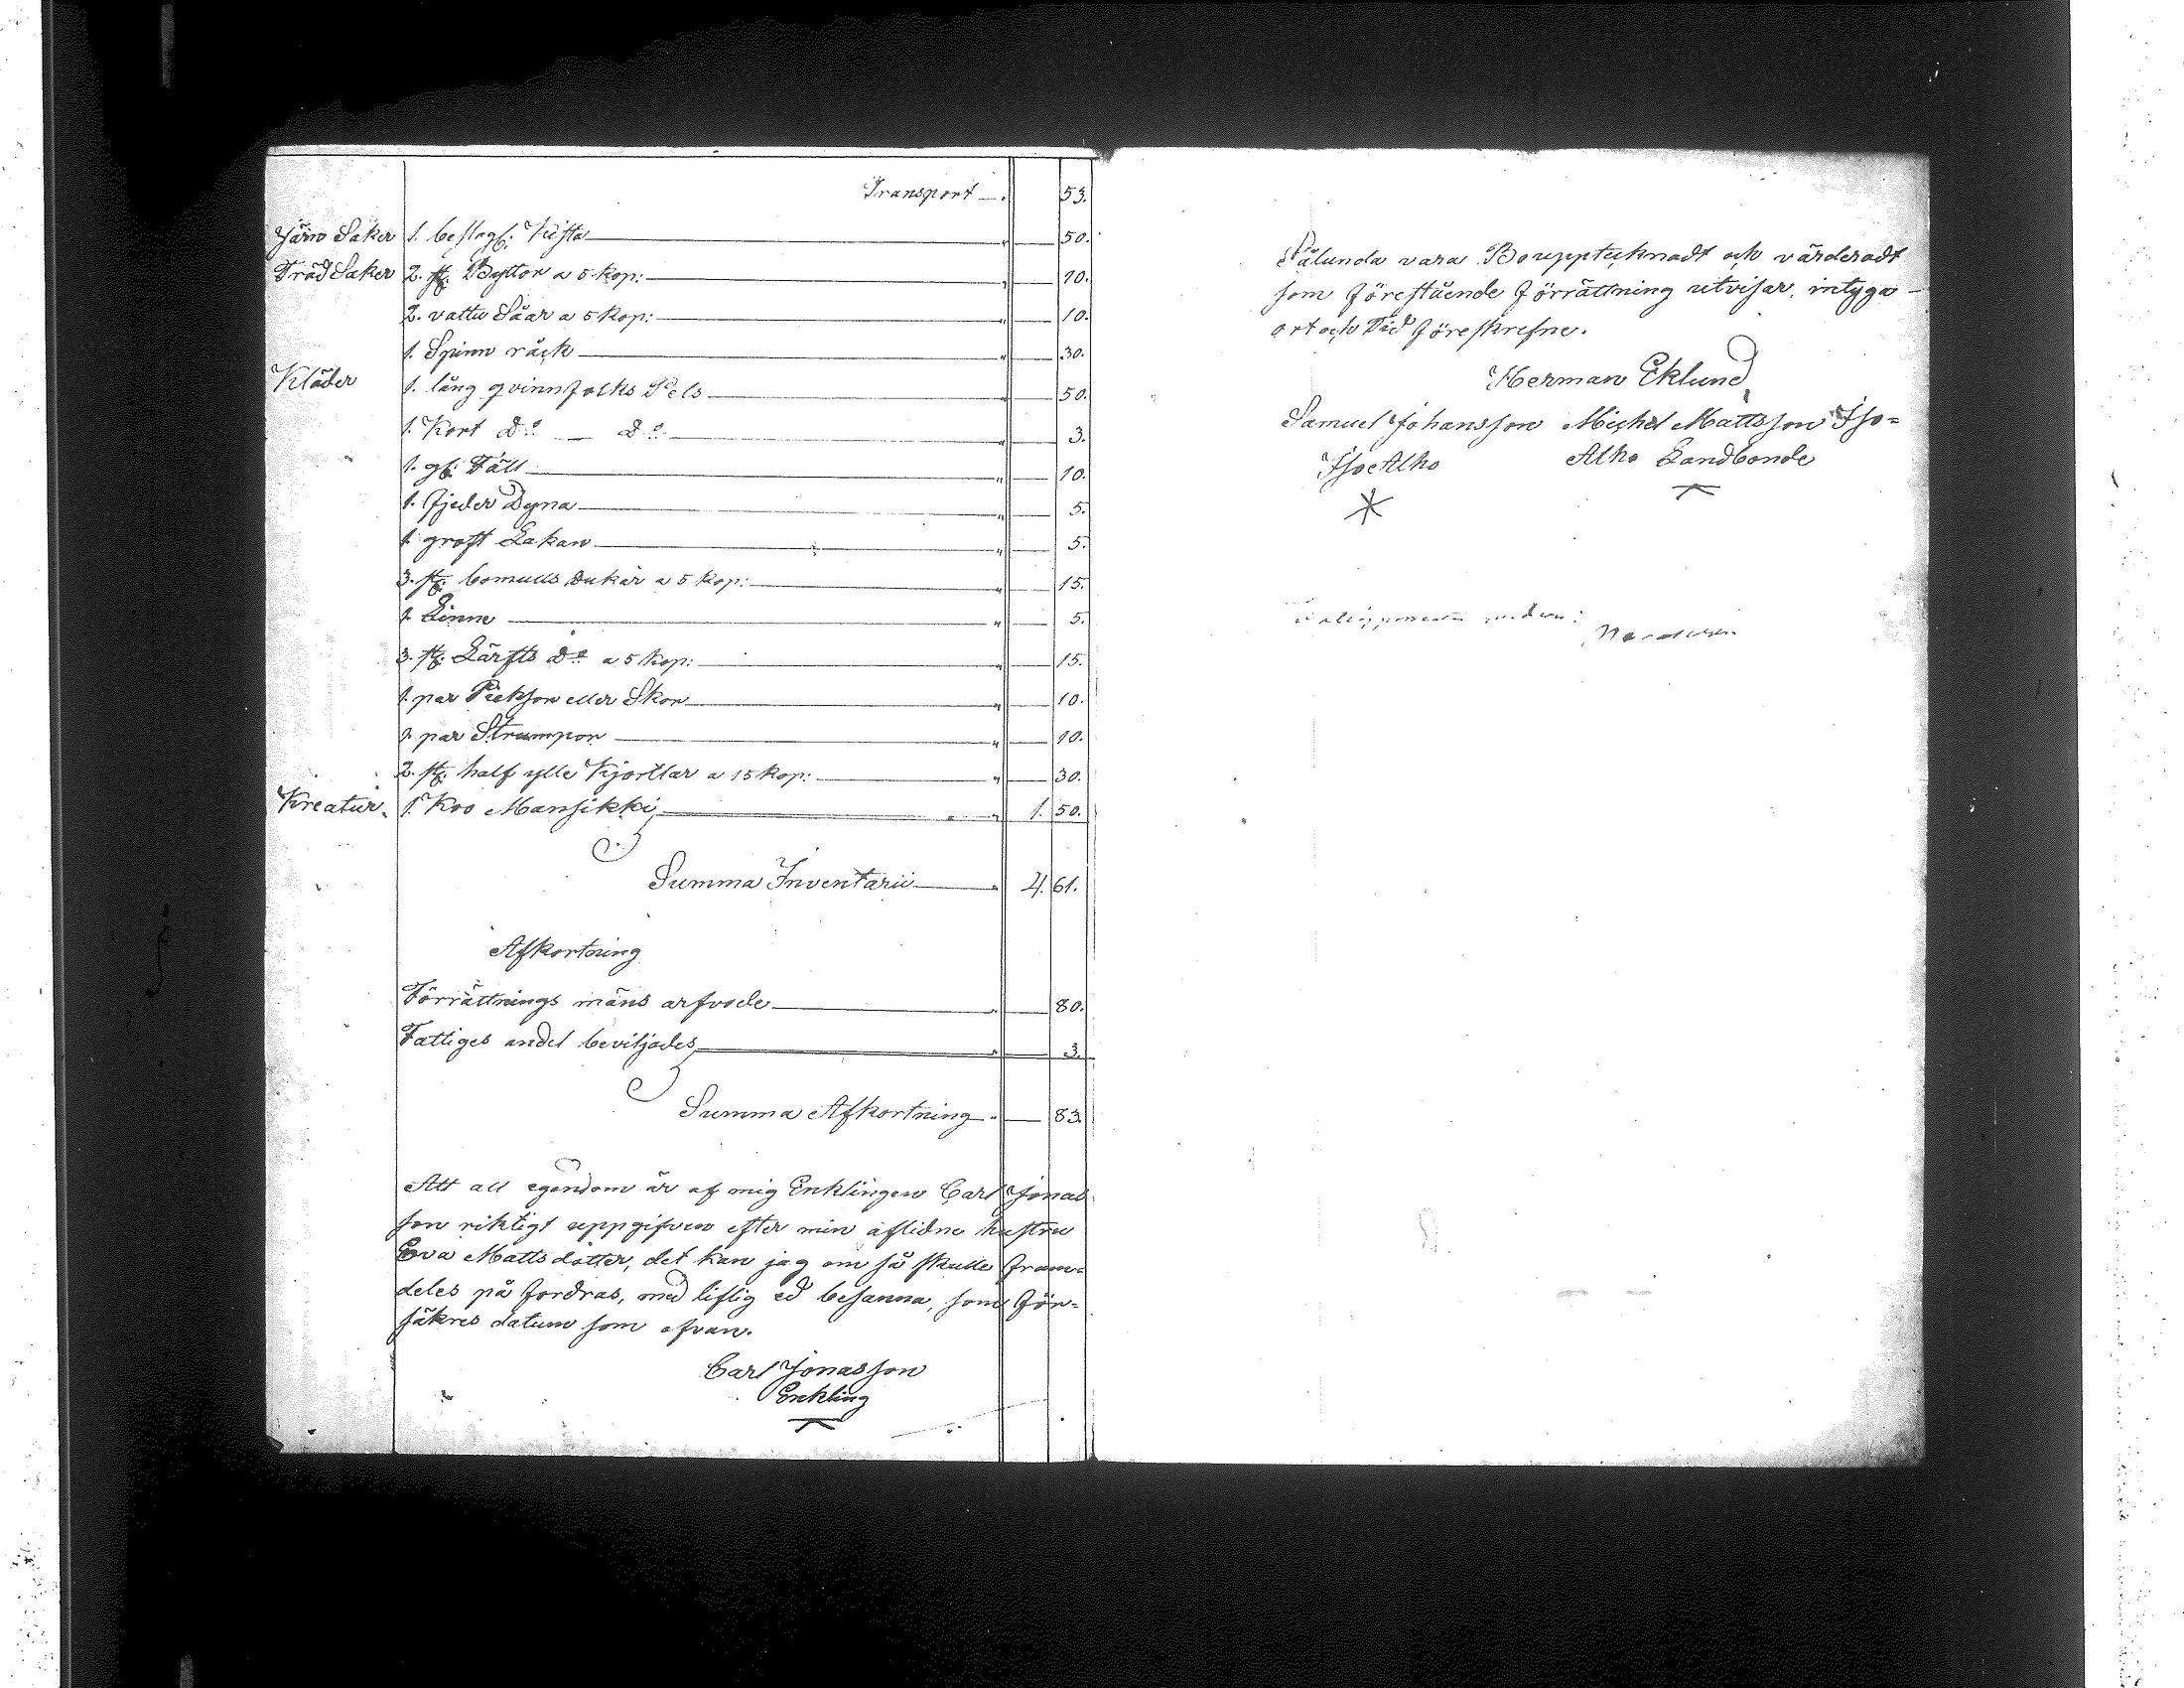 Transport 53.
Järn Saker 1. beslagf: Kista 50.
Träd Saker 2. st: Byttor a 5 kop: 10.
2. vattu Såar a 5 kop: 10.
1. Spinn råck 30.
Kläder 1. lång qvinnfolks Pels 50.
1. Kort Do — Do 3.
1. gl: Fäll 10.
1. fjeder Dyna 5.
1 groft Lakan 5.
3. st: bomulls Dukar a 5 kop: 15.
1 Linne 5.
3. st: Lärfts Do a 5 kop: 15.
1. par Pieksor eller Skor 10.
1. par Strumpor 10.
2. st: half ylle Kjortlar a 15 kop: 30.
Kreatur. 1. Koo Mansikki 1. 50.
Summa Inventarii 4. 61.
Afkortning
Förrättnings mäns arfvode 80.
Fattiges andel beviljades 3.
Summa Afkortning 83.
Att all egendom är af mig Enklingen Carl Jonas
son riktigt uppgifven efter min aflidne hustru
Eva Mattsdotter, det kan jag om så skulle fram=
deles på fordras, med liflig ed besanna, som för=
säkres datum som ofvan.
Carl Jonasson
Enkling
Sålunda vara Boupptecknadt och värderadt
som förestående förrättning utvisar, intyga
ort och Tid föreskrefne.
Herman Eklund
Samuel Johansson Michel Mattsson Iso=
Iso Alho Alho Landbonde